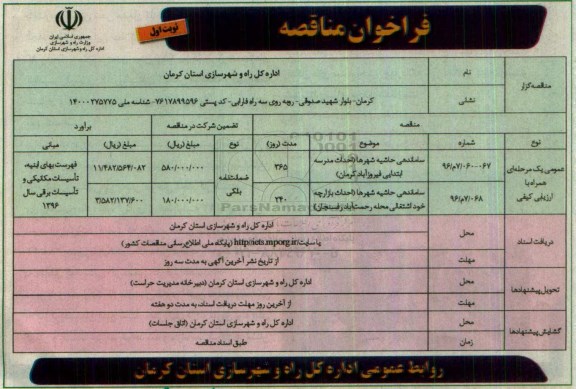 جمهوری اسلامی ایران
وزارت راه و شهرسازی
اداره کل راه و شهرسازی استان کرمان
فراخوان مناقصه
نوبت اول
مناقصه گزار
نام
اداره کل راه و شهرسازی استان کرمان
نشانی
کرمان- بلوار شهید صدوقی- روبه روی سه راه فارابی- کد پستی ۷۶۱۷۸۹۹۵۹۶- شناسه ملی ۱۴۰۰۰۲۷۵۷۷۵
مناقصه
تضمین شرکت در مناقصه
برآورد
نوع
شماره
موضوع
مدت (روز)
نوع
مبلغ (ریال)
مبلغ (ریال)
مبانی
عمومی یک مرحله‌ای همراه با ارزیابی کیفی
۹۶/م/۷/۰۶۰۰۰۶۷
ساماندهی حاشیه شهرها (احداث مدرسه ابتدایی فیروزآباد کرمان)
۳۶۵
ضمانتنامه بانکی
۵۸۰/۰۰۰/۰۰۰
۱۱/۴۸۲/۵۶۴/۰۸۲
فهرست بهای ابنیه، تأسیسات مکانیکی و تأسیسات برقی سال ۱۳۹۶
۹۶/م/۷/۰۶۸
ساماندهی حاشیه شهرها (احداث بازارچه خوداشتغالی محله رحمت‌آباد رفسنجان)
۲۴۰
۱۸۰/۰۰۰/۰۰۰
۳/۵۸۲/۱۳۷/۶۰۰
دریافت اسناد
محل
اداره کل راه و شهرسازی استان کرمان
یا سایت http://iets.mporg.ir (پایگاه ملی اطلاع‌رسانی مناقصات کشور)
مهلت
از تاریخ نشر آخرین آگهی به مدت سه روز
تحویل پیشنهادها
محل
اداره کل راه و شهرسازی استان کرمان (دبیرخانه مدیریت حراست)
مهلت
از آخرین روز مهلت دریافت اسناد، به مدت دو هفته
گشایش پیشنهادها
محل
اداره کل راه و شهرسازی استان کرمان (اتاق جلسات)
زمان
طبق اسناد مناقصه
روابط عمومی اداره کل راه و شهرسازی استان کرمان